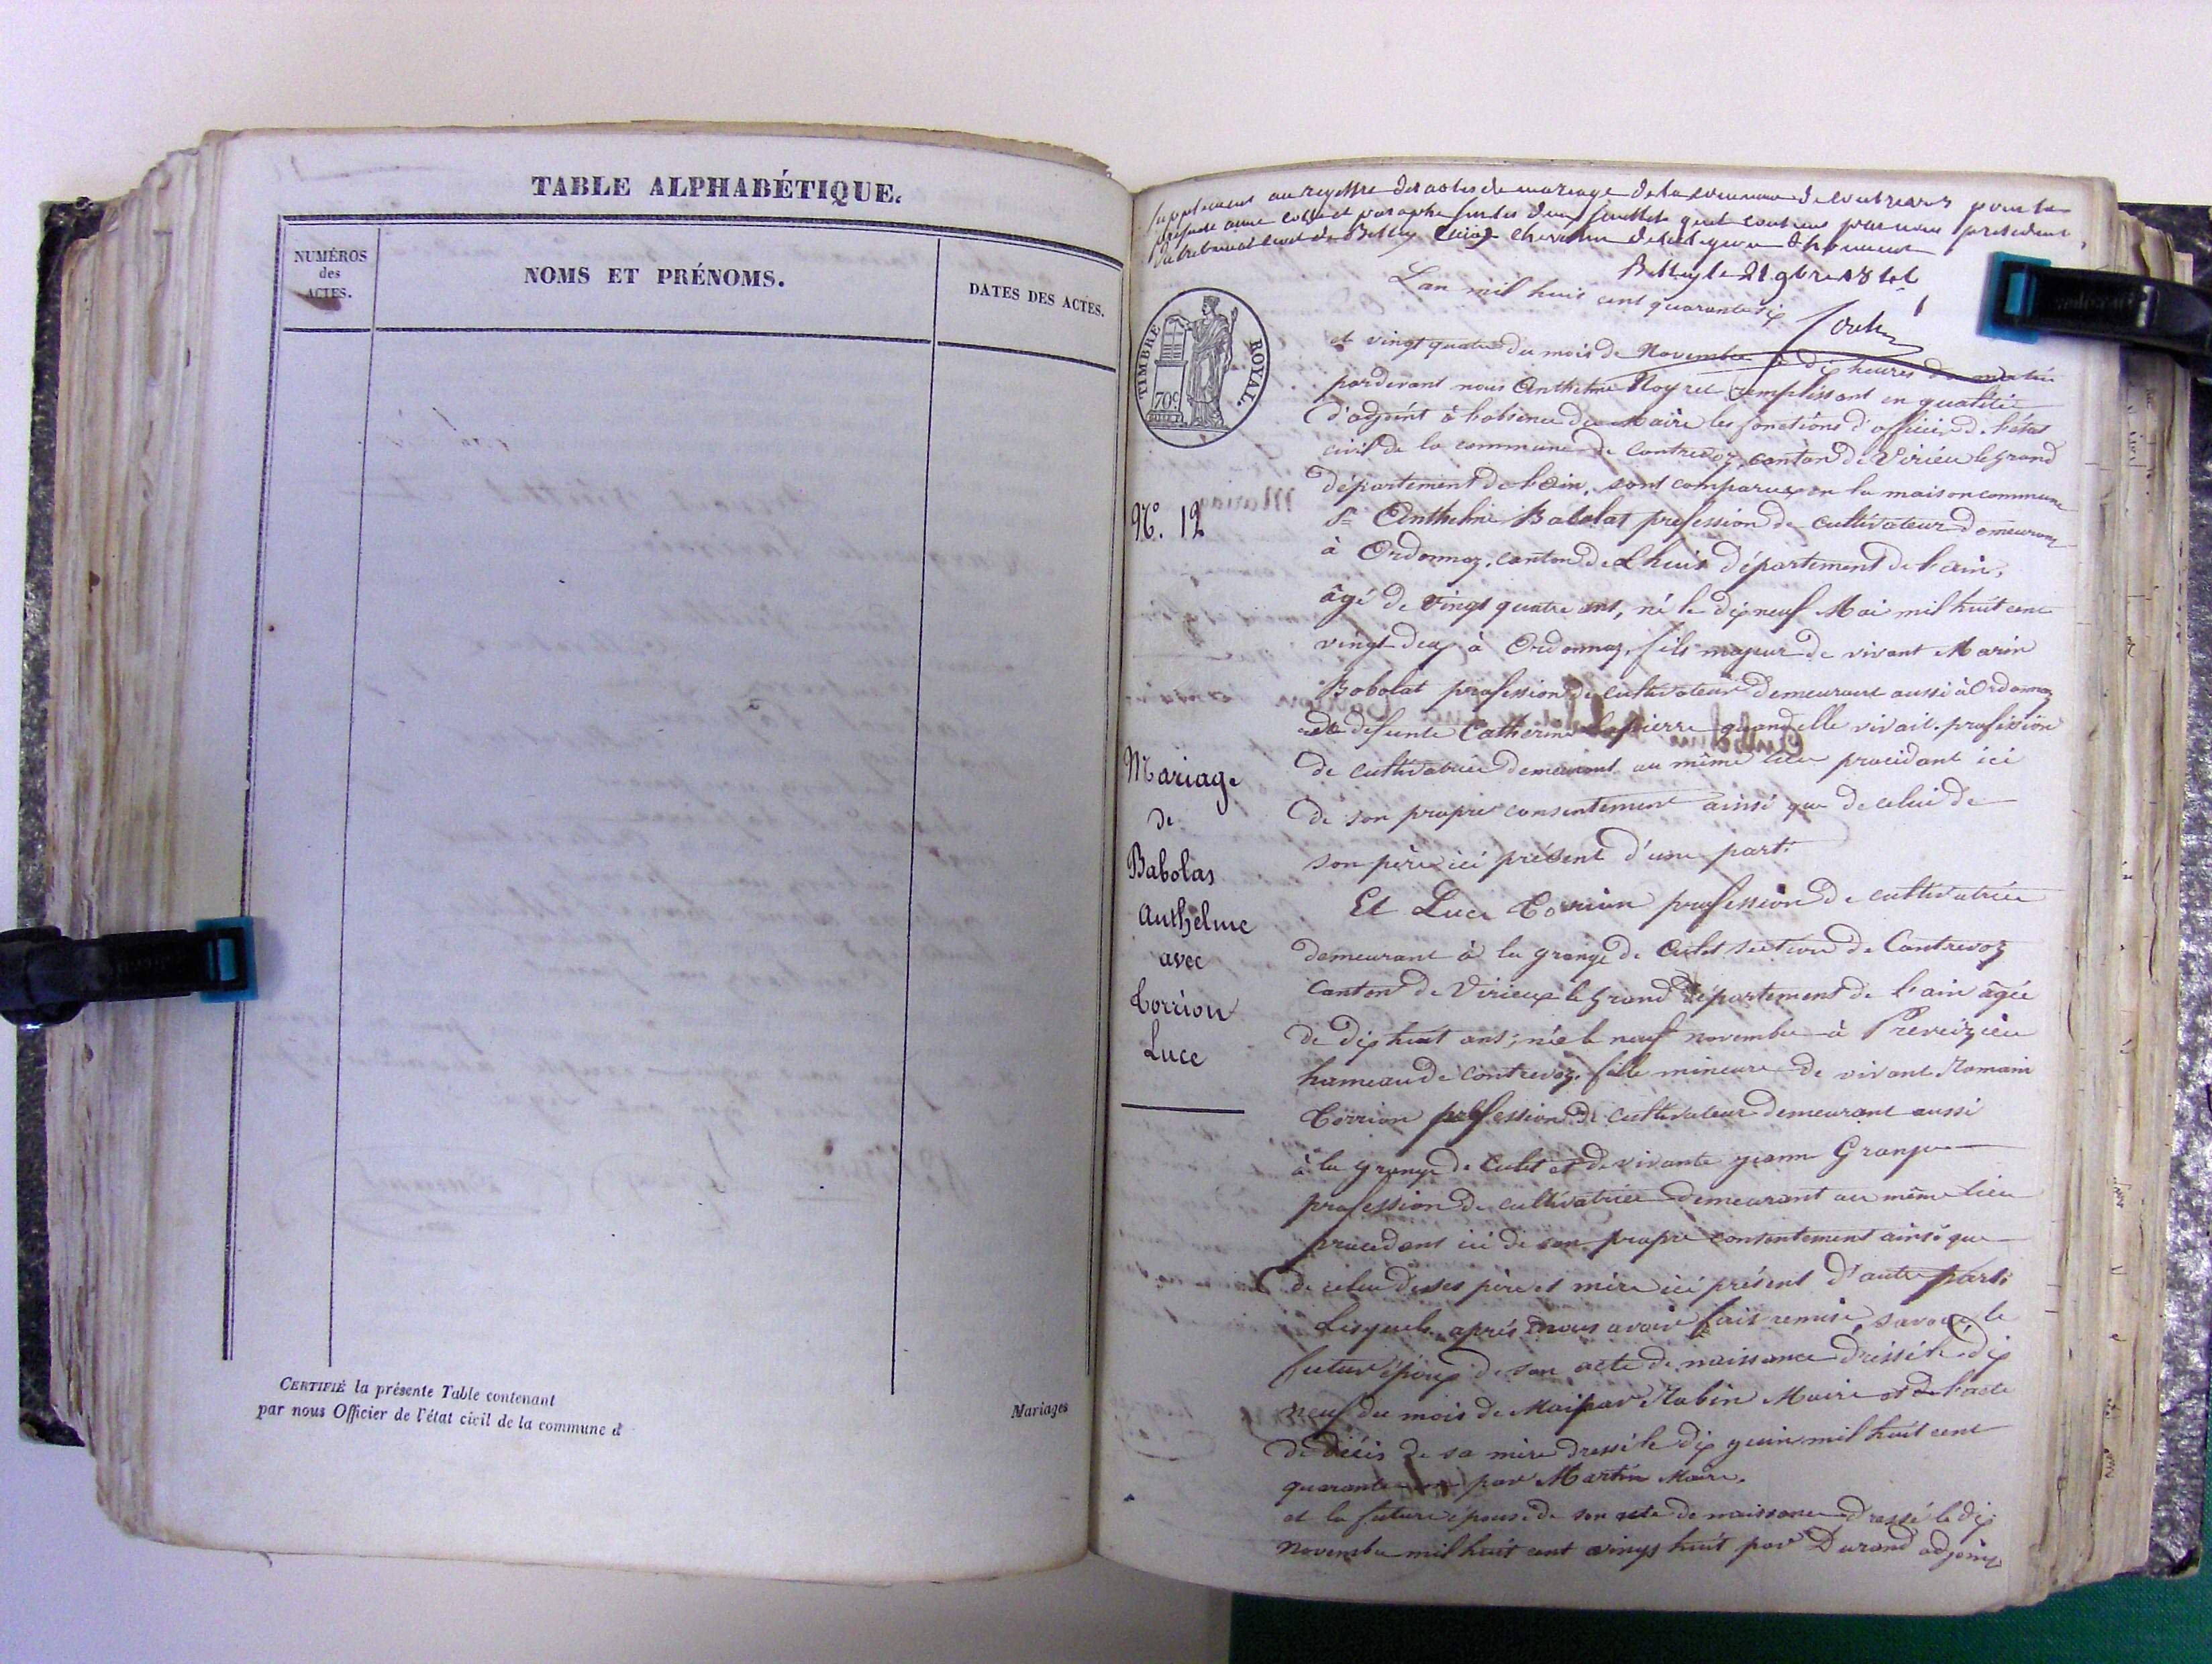 TABLE ALPHABÉTIQUE.
NUMÉROS
des
ACTES.
NOMS ET PRÉNOMS.
DATES DES ACTES.
CERTIFIÉ la présente Table contenant
par nous Officier de l'état civil de la commune d
Mariages
supplement au registre des actes de mariage de la commune de contrevoz pour la
presente année coté et paraphé sur les deux feuillets qu'il contient par nous president
du tribunal civil de Belley chevalier de la legion d'honneur
Belley le 21 9bre 1846
TIMBRE ROYAL.
70c
N.º 12
Mariage
de
Babolas
Anthelme
avec
Corrion
Luce
L'an mil huit cent quarante six
et vingt quatre du mois de Novembre à dix heures du matin
pardevant nous Anthelme Noyret remplissant en qualité
d'adjoint à l'absence du Maire les fonctions d'officier de l'état
civil de la commune de Contrevoz, canton de Virieu le grand
département de l'ain, sont comparus en la maison commune
Sr Anthelme Babolat profession de cultivateur demeurant
à Ordonnaz, canton de Lhuis département de l'ain,
âgé de vingt quatre ans, né le dix neuf Mai mil huit cent
vingt deux à Ordonnaz, fils majeur de vivant Marin
Bobolat profession de cultivateur demeurant aussi à Ordonnaz
et de défunte Catherine Lapierre quand elle vivait profession
de cultivatrice demeurant au même lieu procédant ici
de son propre consentement ainsi que de celui de
son père ici présent d'une part.
Et Luce Corrion profession de cultivatrice
demeurant à la grange de Culet section de Contrevoz
Canton de Virieux le grand département de l'ain âgée
de dix huit ans, née le neuf novembre à Preveizieu
hameau de Contrevoz, fille mineure de vivant Romain
Corrion profession de cultivateur demeurant aussi
à la grange de Culet et de vivante jeanne Granju
profession de cultivatrice demeurant au même lieu
procedant ici de son propre consentement ainsi que
de celui de ses père et mère ici présent d'autre part;
Lesquels après nous avoir fait remise, savoir, le
futur époux de son acte de naissance dressé le dix
neuf du mois de Mai par Rabin Maire et de l'acte
de décès de sa mère dressé le dix juin mil huit cent
quarante par Martin Maire.
et la future épouse de son acte de naissance dressé le dix
novembre mil huit cent vingt huit par Durand adjoint